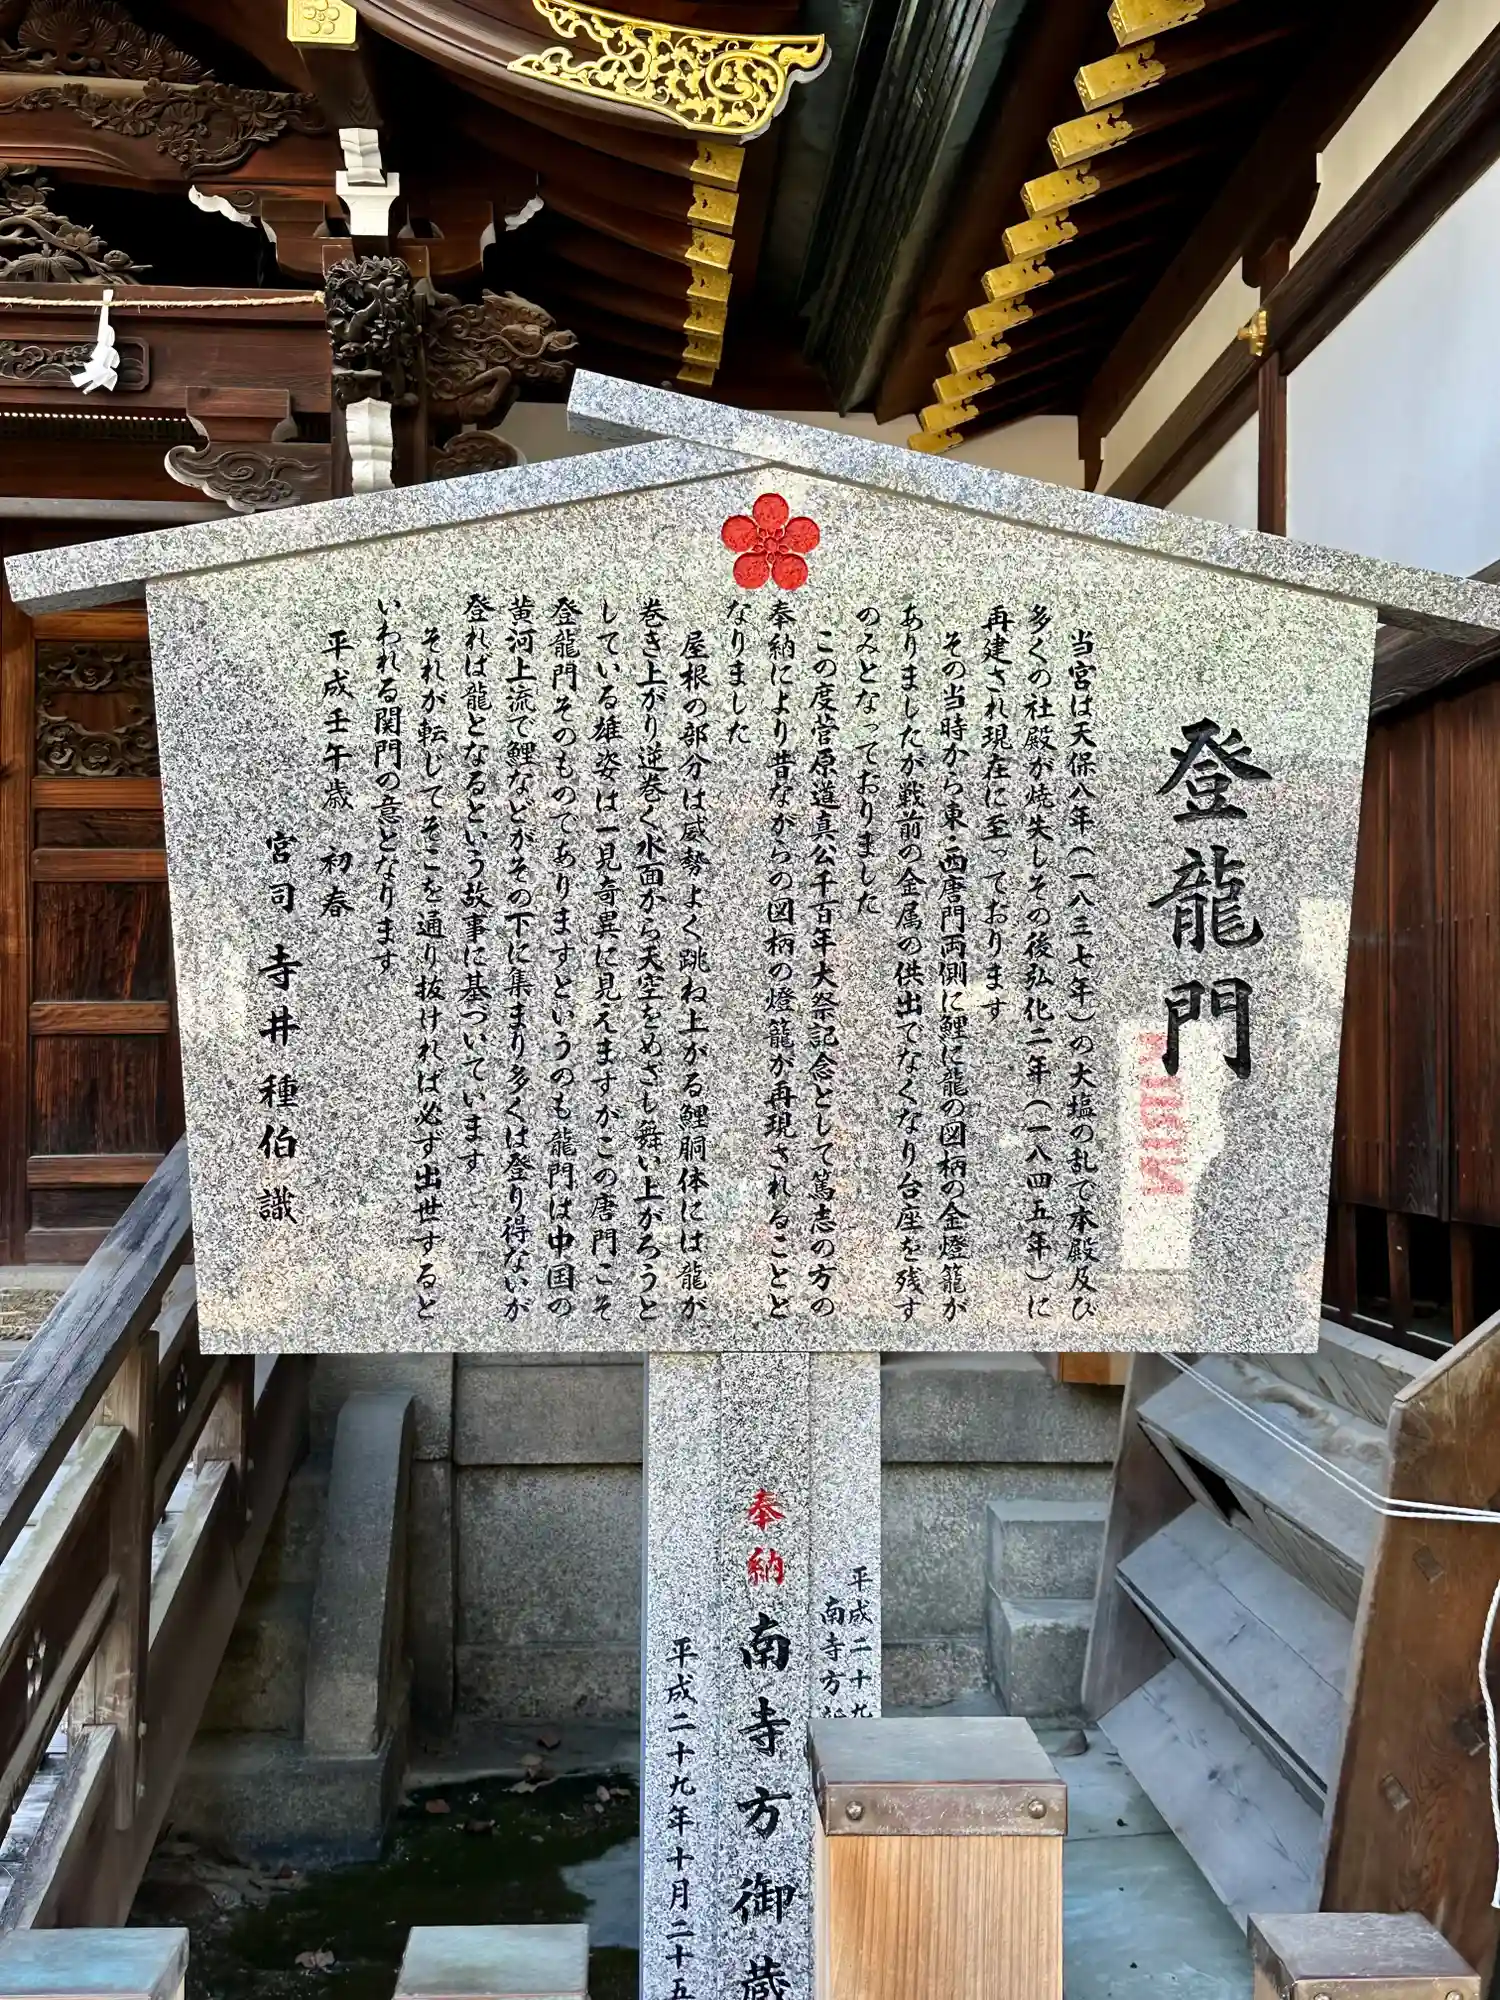 登龍門
当宮は天保八年(一八三七年)の大塩の乱で本殿及び
多くの社殿が焼失しその後弘化二年(一八四五年)に
再建され現在に至っております
その当時から東・西唐門両側に鯉に龍の図柄の金燈籠が
ありましたが戦前の金属の供出でなくなり台座を残す
のみとなっておりました
この度菅原道真公千百年大祭記念として篤志の方の
奉納により昔ながらの図柄の燈籠が再現されることと
なりました
屋根の部分は威勢よく跳ね上がる鯉胴体には龍が
巻き上がり逆巻く水面から天空をめざし舞い上がろうと
している雄姿は一見奇異に見えますがこの唐門こそ
登龍門そのものでありますというのも龍門は中国の
黄河上流で鯉などがその下に集まり多くは登り得ないが
登れば龍となるという故事に基づいています
それが転じてそこを通り抜ければ必ず出世すると
いわれる関門の意となります
平成壬午歳 初春
宮司 寺井種伯 識
平成二十九
南寺方
奉納 南寺方御蔵
平成二十九年十月二十五